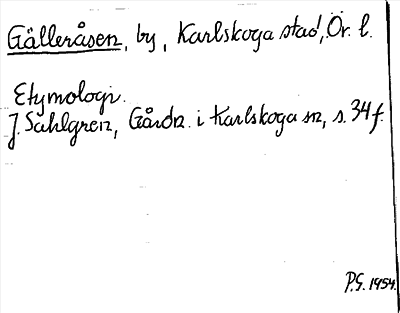 Gälleråsen, by, Karlskoga stad, Ör. l.
Etymologi.
J. Sahlgren, Gårdn. i Karlskoga sn, s. 34 f.
P.G. 1954.